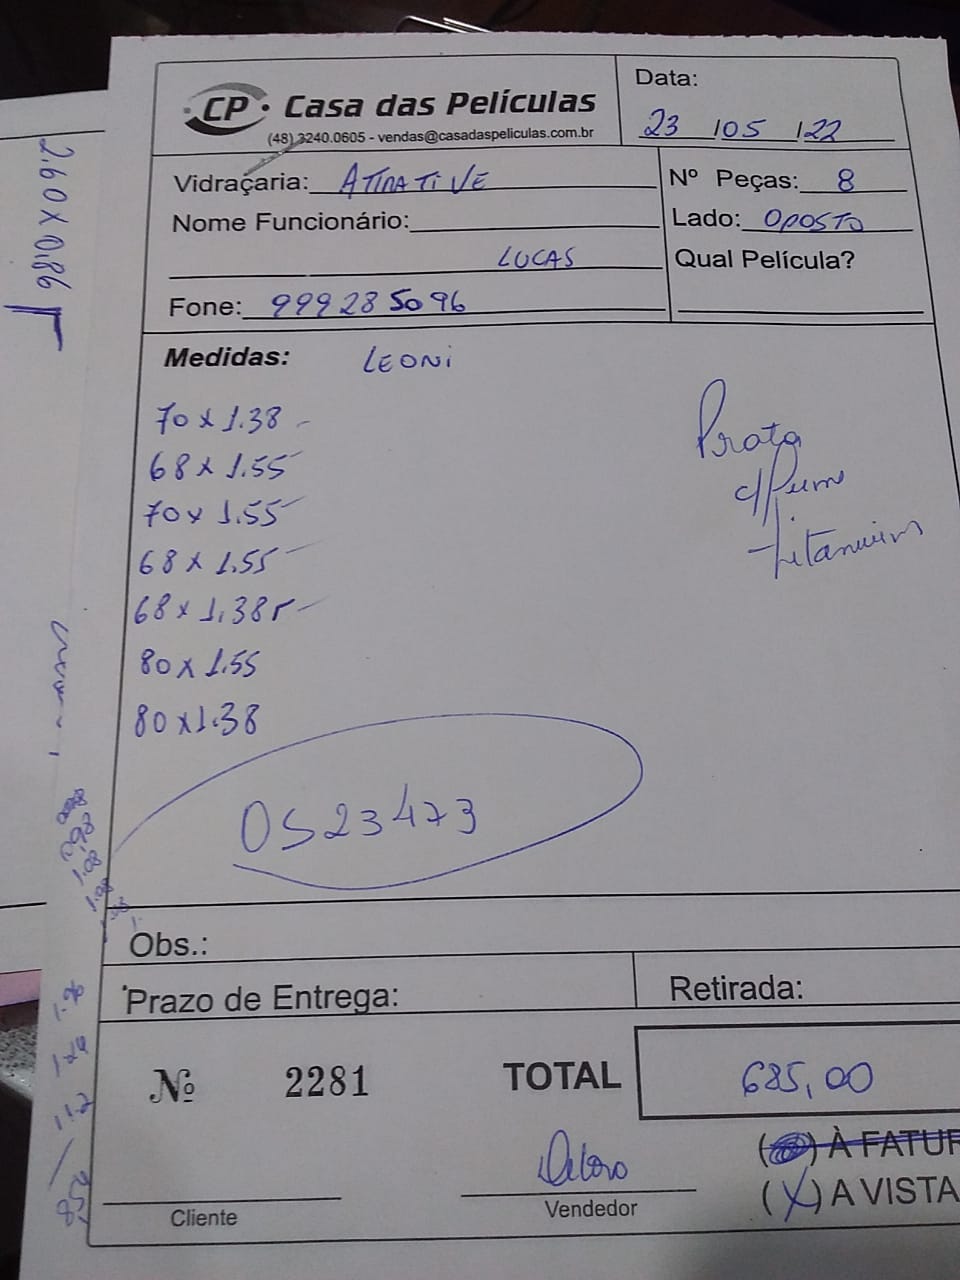 CP Casa das Películas
(48) 3240.0605 - vendas@casadaspeliculas.com.br
Data:
23 / 05 / 22
Vidraçaria: ATIRATIVE
Nº Peças: 8
Nome Funcionário:
Lado: OPOSTO
LUCAS
Qual Película?
Fone: 999285096
Medidas: LEONI
70 x 1.38 -
68 x 1.55 -
70 x 1.55 -
68 x 1.55 -
68 x 1.38 -
80 x 1.55
80 x 1.38
Prata
c/
titanium
OS23473
Obs.:
Prazo de Entrega:
Retirada:
Nº 2281
TOTAL 685,00
( ) À FATUR
(X) A VISTA
Cliente
Vendedor
2.60 x 0.86